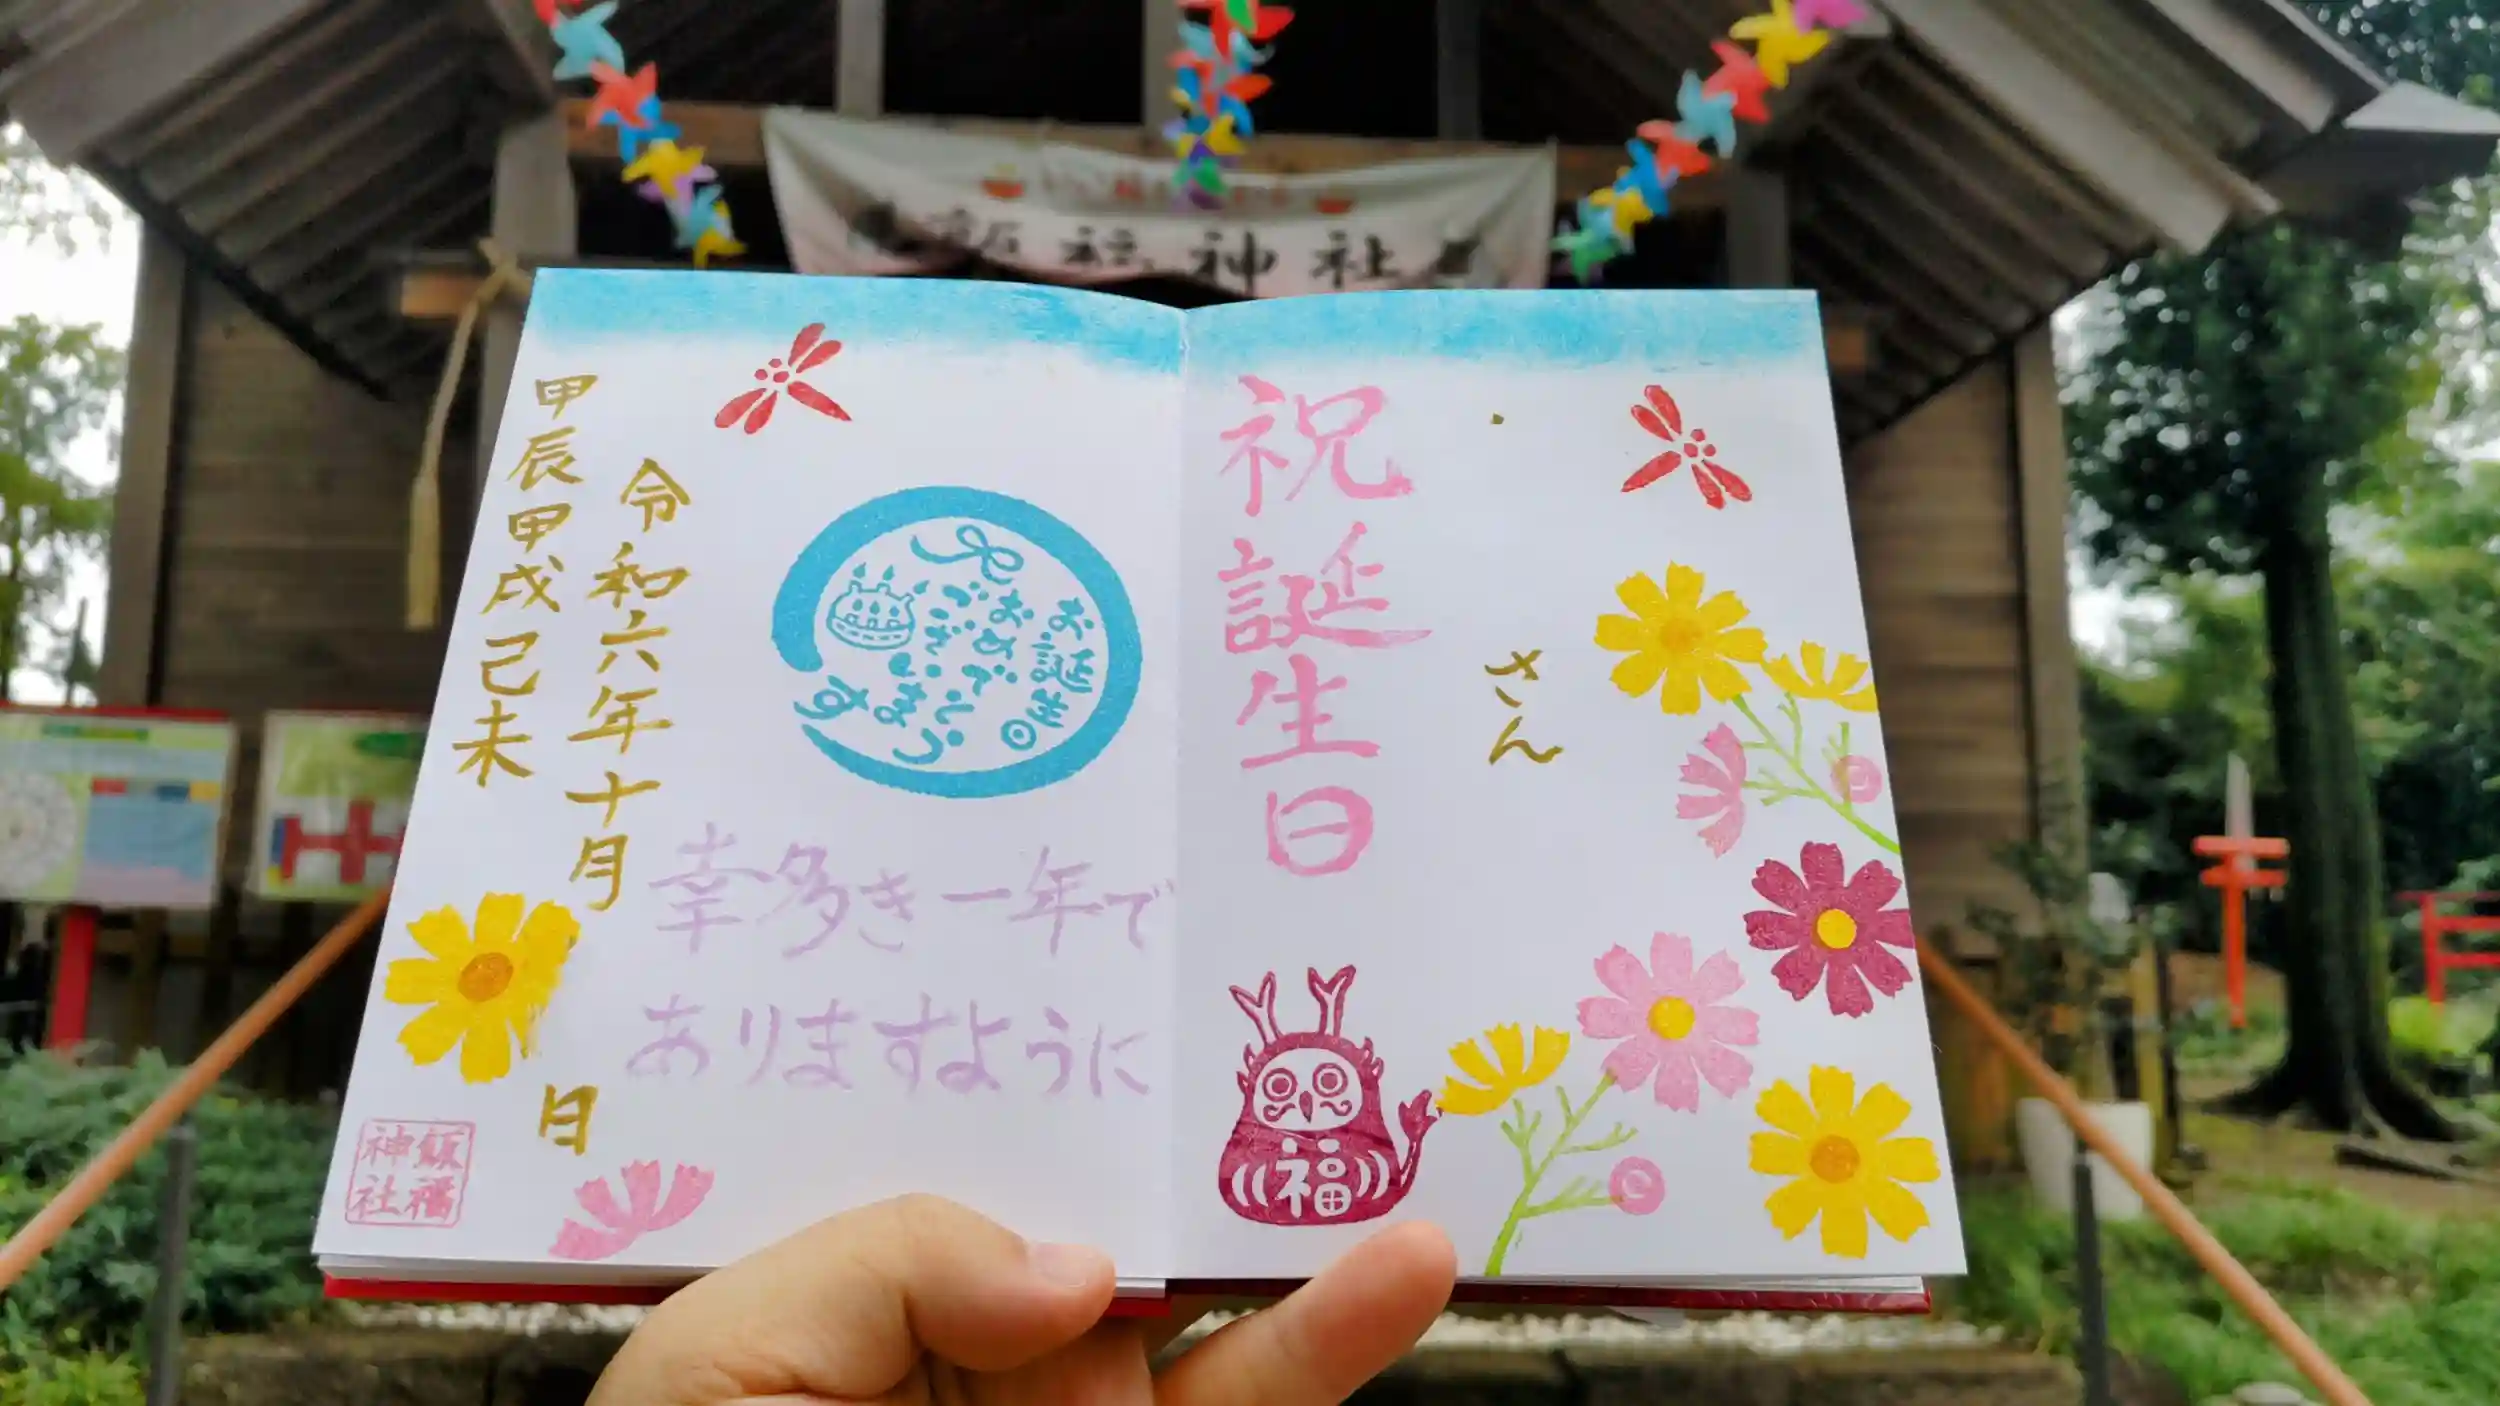 祝誕生日
さん
福
お誕生日
おめでとう
ございます
幸多き一年で
ありますように
令和六年十月
日
甲辰甲戌己未
飯福
神社
神社